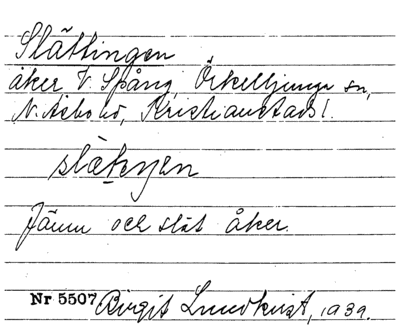 Slättingen
åker V. Spång, Örkelljunga sn,
N. Åsbo hd, Kristianstads l.
slätıŋen
Jämn och slät åker.
Nr 5507 Birgit Lundkvist, 1939.